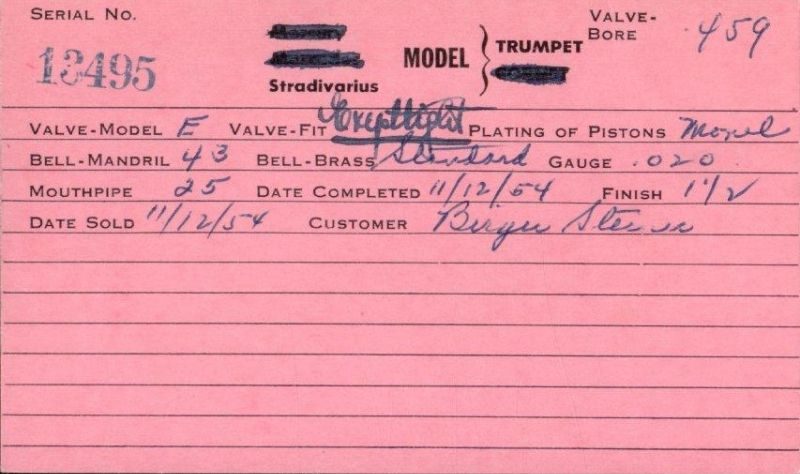 SERIAL NO. 13495
Stradivarius
MODEL } TRUMPET
VALVE-BORE .459
VALVE-MODEL E VALVE-FIT PLATING OF PISTONS Monel
BELL-MANDRIL 43 BELL-BRASS Standard GAUGE .020
MOUTHPIPE 25 DATE COMPLETED 11/12/54 FINISH 1 1/2
DATE SOLD 11/12/54 CUSTOMER